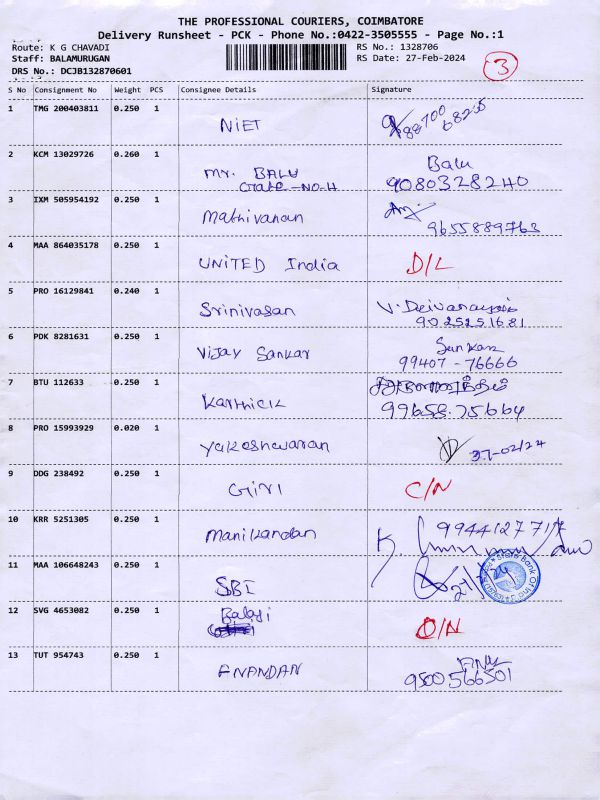 THE PROFESSIONAL COURIERS, COIMBATORE
Delivery Runsheet - PCK - Phone No.:0422-3505555 - Page No.:1
Route: K G CHAVADI
RS No.: 1328706
Staff: BALAMURUGAN
RS Date: 27-Feb-2024
3
DRS No.: DCJB132870601
S No Consignment No Weight PCS Consignee Details Signature
1 TMG 200403811 0.250 1
NIET 88700 68235
2 KCM 13029726 0.260 1
Mr. BALU Balu
Gate-NO-4 9080328240
3 IXM 505954192 0.250 1
Mathivanan
9655889763
4 MAA 864035178 0.250 1
UNITED India D/L
5 PRO 16129841 0.240 1
Srinivasan
9025251681
6 PDK 8281631 0.250 1
Vijay Sankar Sankar
99407-76666
7 BTU 112633 0.250 1
Karthick 99658.75664
8 PRO 15993929 0.020 1
Yakeshwaran 27-02/24
9 DDG 238492 0.250 1
Giri C/N
10 KRR 5251305 0.250 1
Manikandan K.
11 MAA 106648243 0.250 1
SBI
12 SVG 4653082 0.250 1
Balaji
D/N
13 TUT 954743 0.250 1
ANANDAN 9500566501